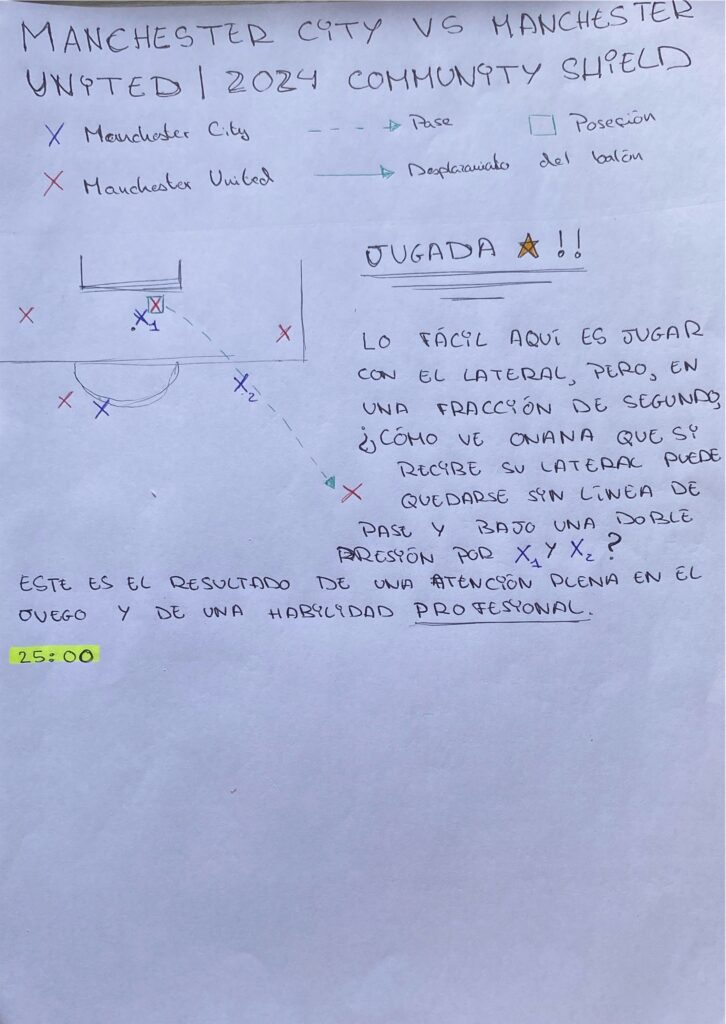 MANCHESTER CITY VS MANCHESTER
UNITED | 2024 COMMUNITY SHIELD
X Manchester City
Pase
Poseción
del balón
X Manchester United
Desplazamiento
JUGADA ★ !!
X1
X2
LO FÁCIL AQUÍ ES JUGAR
CON EL LATERAL, PERO, EN
UNA FRACCIÓN DE SEGUNDO,
¿CÓMO VE ONANA QUE SI
RECIBE SU LATERAL PUEDE
QUEDARSE SIN LÍNEA DE
PASE Y BAJO UNA DOBLE
PRESIÓN POR X1 Y X2?
ESTE ES EL RESULTADO DE UNA ATENCIÓN PLENA EN EL
JUEGO Y DE UNA HABILIDAD PROFESIONAL.
25:00